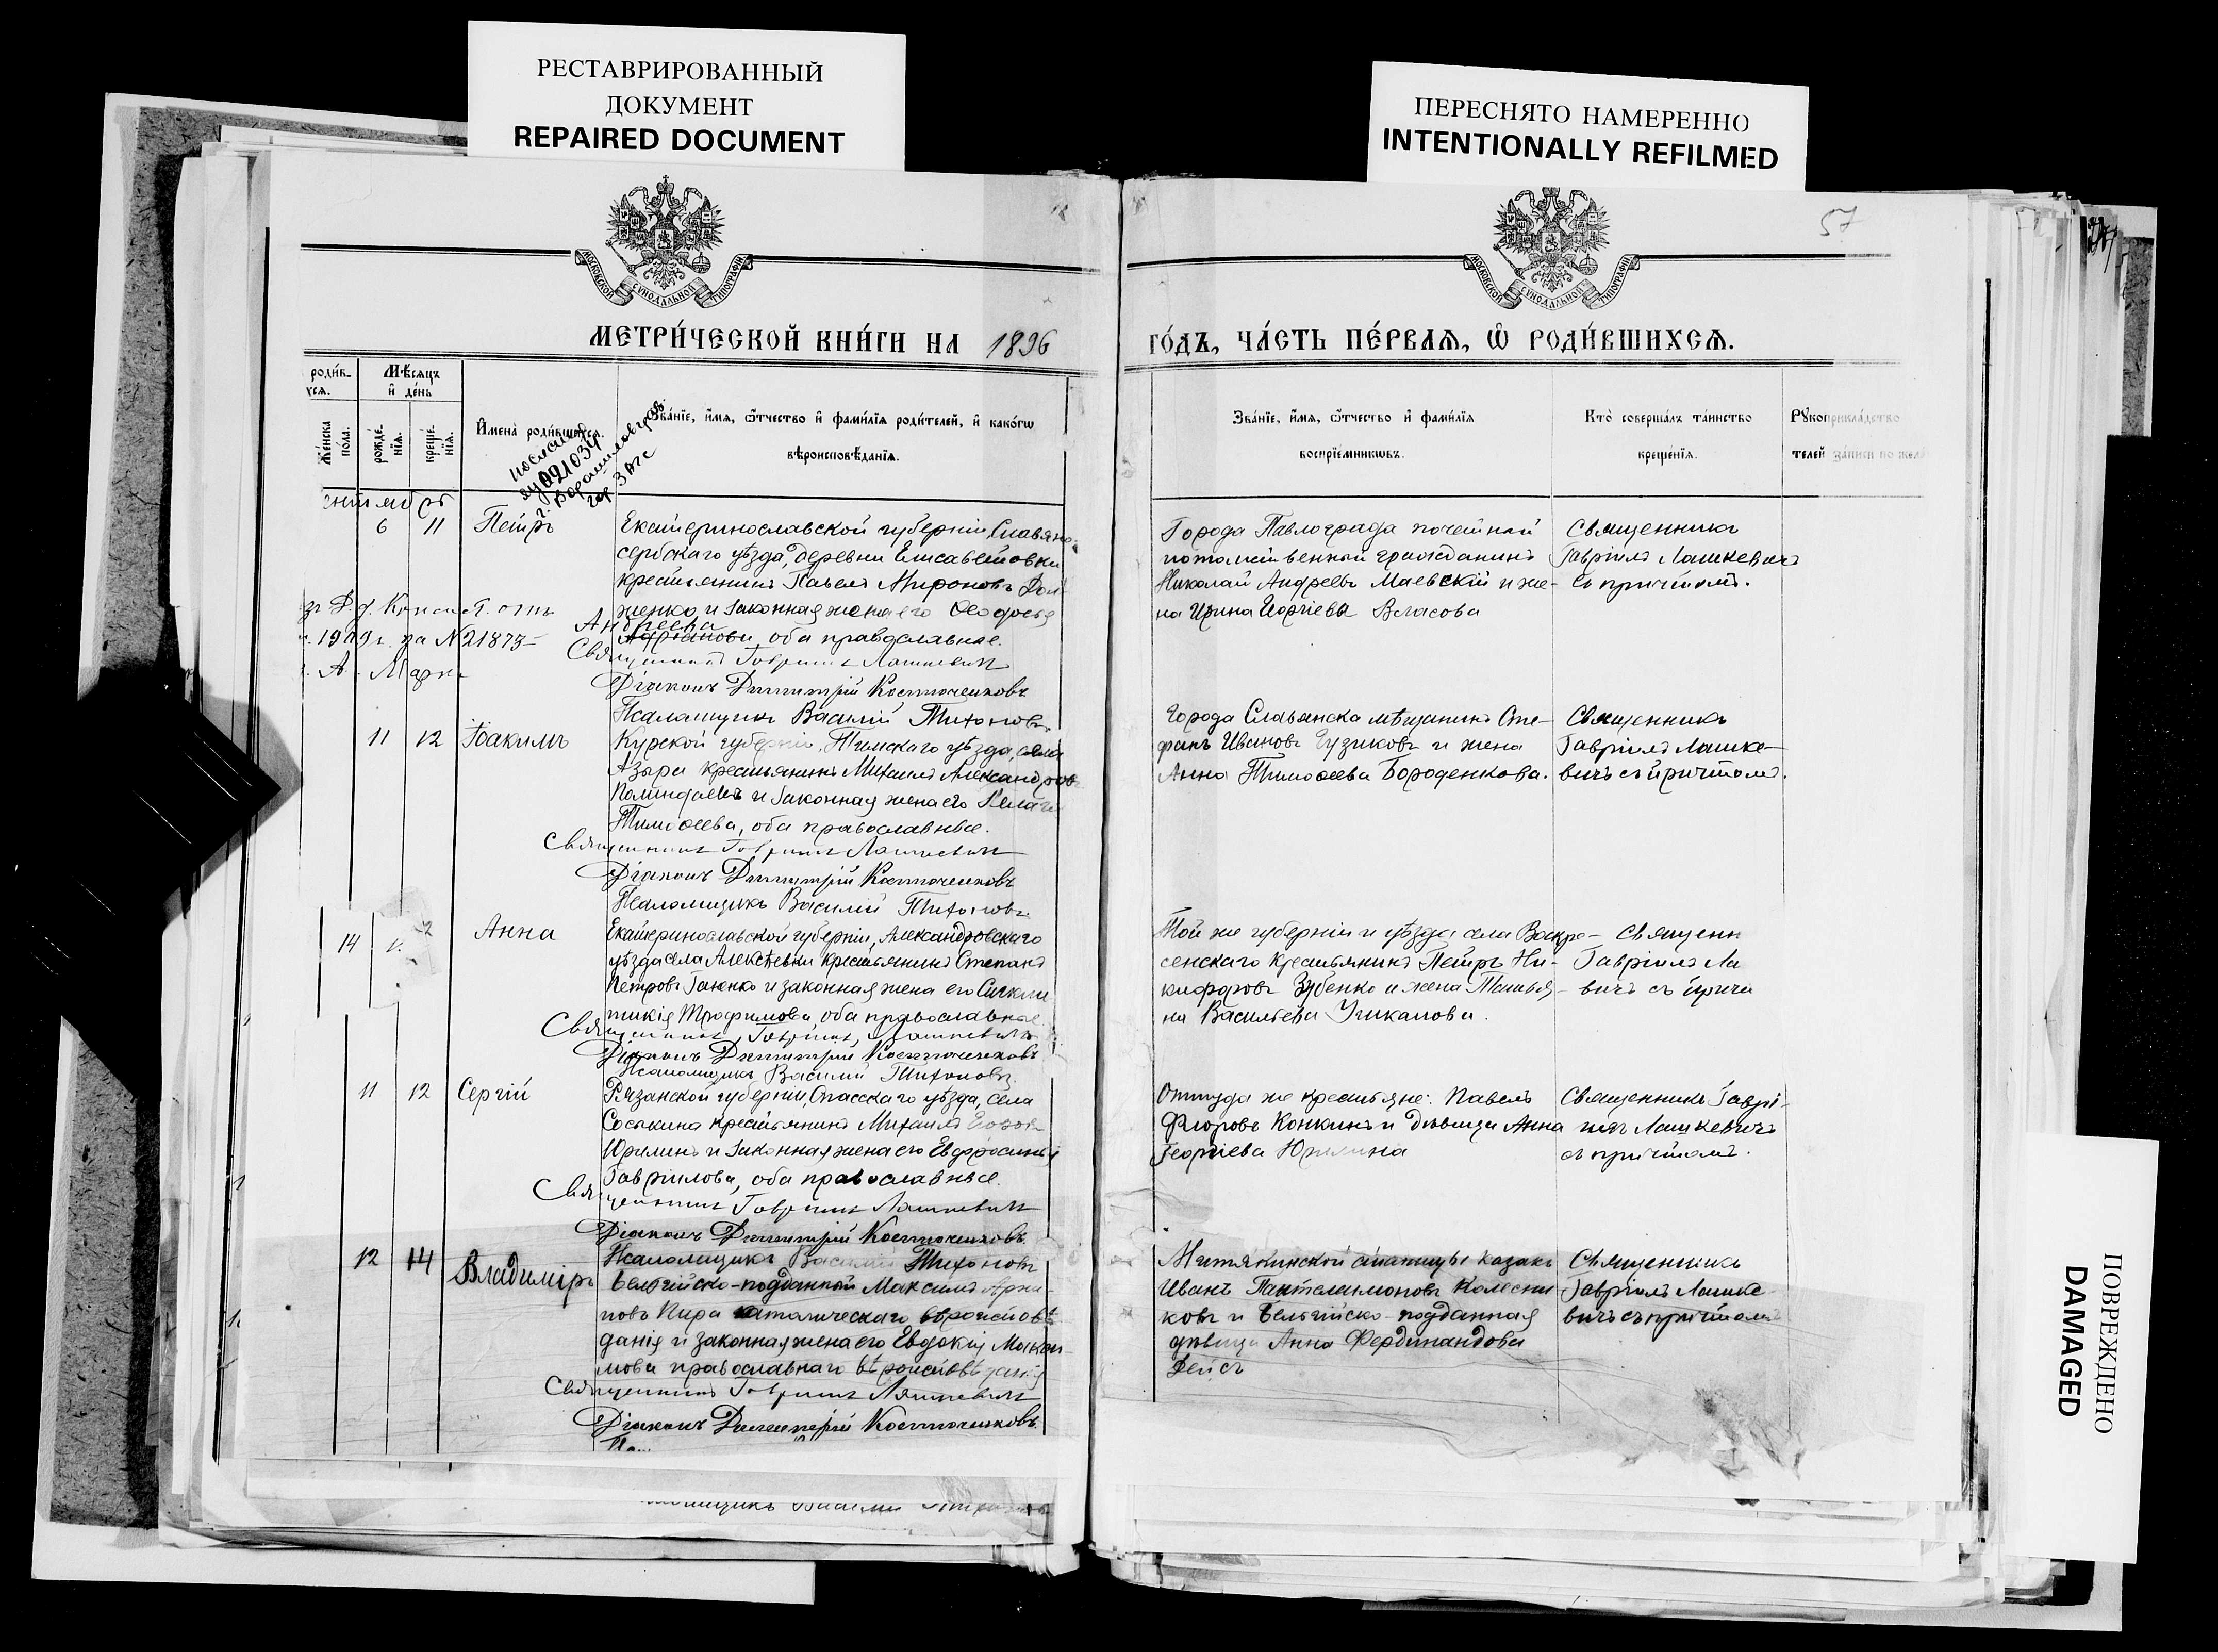 РЕСТАВРИРОВАННЫЙ
ДОКУМЕНТ
REPAIRED DOCUMENT
ПЕРЕСНЯТО НАМЕРЕННО
INTENTIONALLY REFILMED
57
МОСКОВСКОЙ СѴНОДАЛЬНОЙ ТИПОГРАФІИ
МОСКОВСКОЙ СѴНОДАЛЬНОЙ ТИПОГРАФІИ
МЕТРИ́ЧЕСКОЙ КНИ́ГИ НА 1896
ГО́ДЪ, ЧА́СТЬ ПЕ́РВАѦ, Ѡ҆ РОДИ́ВШИХСѦ.
роди́в-
Мѣсяцъ
и҆ де́нь
Же́нска
по́ла.
рожде́-
нїѧ.
креще́-
нїѧ.
И҆мена̀ роди́вшихсѧ.
Зва́нїе, и҆́мя, ѻ҆́тчество и҆ фами́лїѧ роди́телей, и҆ како́гѡ
вѣроисповѣ́данїѧ.
Зва́нїе, и҆́мя, ѻ҆́тчество и҆ фами́лїѧ
воспрїе́мникѡвъ.
Кто̀ соверша́лъ та́инство
креще́нїѧ.
Рꙋкоприкла́дство
телей за́писи по
гор ЗАГС
6 11 Петръ
Екатеринославской губерніи Славяно-
сербскаго уѣзда, деревни Елисаветовки
крестьянинъ Павелъ Мироновъ
женко и законная жена его Ѳеодосія
Андреева
оба православные.
1909 г. за № 21873
Священникъ Гавріилъ Лашкевичъ
Діаконъ Димитрій Косточенковъ
Псаломщикъ Василій Тихоновъ
Города Павлограда почетный
потомственный гражданинъ
Николай Андреевъ Маевскій и же-
на Ирина Георгіева Власова
Священникъ
Гавріилъ Лашкевичъ
съ причтомъ.
11 12 Іоакимъ
Курской губерніи, Тимскаго уѣзда, села
крестьянинъ Михаилъ Александровъ
и законная жена его
Тимоѳеева, оба православные.
Священникъ Гавріилъ Лашкевичъ
Діаконъ Димитрій Косточенковъ
Псаломщикъ Василій Тихоновъ
Города Славянска мѣщанинъ Сте-
фанъ Ивановъ Гузиковъ и жена
Анна Тимоѳеева Бороденкова.
Священникъ
Гавріилъ Лашке-
вичъ съ причтомъ.
14 Анна
Екатеринославской губерніи, Александровскаго
уѣзда села Алексѣевки крестьянинъ Степанъ
Петровъ и законная жена его Синкли-
тикія Трофимова, оба православные.
Священникъ Гавріилъ Лашкевичъ
Діаконъ Димитрій Косточенковъ
Псаломщикъ Василій Тихоновъ
Той же губерніи и уѣзда села Воскре-
сенскаго крестьянинъ Петръ Ни-
кифоровъ Зубенко и жена Татья-
на Васильева
Священн
Гавріилъ Ла
вичъ съ прич
11 12 Сергій
Рязанской губерніи, Спасскаго уѣзда, села
Сосыкина крестьянинъ Михаилъ
Юрилинъ и законная жена его Евфросинья
Гавріилова, оба православные.
Священникъ Гавріилъ Лашкевичъ
Діаконъ Димитрій Косточенковъ
Псаломщикъ Василій Тихоновъ
Оттуда же крестьяне: Павелъ
Флоровъ Конкинъ и дѣвица Анна
Георгіева Юрилина
Священникъ Гаврі-
илъ Лашкевичъ
съ причтомъ.
12 14 Владиміръ
Бельгійско-подданный Максимъ
новъ Пира католическаго вѣроисповѣ-
данія и законная жена его Евдокія
мова православнаго вѣроисповѣданія
Священникъ Гавріилъ Лашкевичъ
Діаконъ Димитрій Косточенковъ
Митякинской станицы казакъ
Иванъ Пантелеимоновъ Колесни-
ковъ и Бельгійско-подданная
дѣвица Анна Фердинандова
Священникъ
Гавріилъ Лашке-
вичъ съ причтомъ
ПОВРЕЖДЕНО
DAMAGED